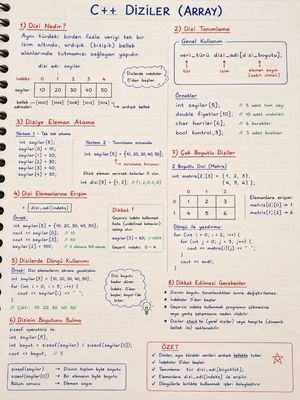 C++ DİZİLER (ARRAY)
1) Dizi Nedir?
Aynı türdeki birden fazla veriyi tek bir
isim altında, ardışık (bitişik) bellek
alanlarında tutmamızı sağlayan yapıdır.
dizi adı: sayilar
indeks: 0 1 2 3 4
sayilar: 10 20 30 40 50
bellek
adresleri
ardışık bellek
Dizilerde indeksler
0'dan başlar.
2) Dizi Tanımlama
Genel Kullanım
veri_türü dizi_adı[dizi_boyutu];
tür
isim
eleman sayısı
(sabit olmalı)
Örnekler
int sayilar[5]; // 5 adet tam sayı
double fiyatlar[10]; // 10 adet ondalıklı
char harfler[6]; // 6 karakter
bool kontrol[3]; // 3 adet boolean
3) Diziye Eleman Atama
Yöntem 1 - Tek tek atama
int sayilar[5];
sayilar[0] = 10;
sayilar[1] = 20;
sayilar[2] = 30;
sayilar[3] = 40;
sayilar[4] = 50;
Yöntem 2 - Tanımlama sırasında
int sayilar[5] = {10, 20, 30, 40, 50};
Eksik eleman verirsek kalanlar 0 olur.
int dizi[5] = {1, 2}; // {1,2,0,0,0}
4) Dizi Elemanlarına Erişim
dizi_adi[indeks]
Örnek:
int sayilar[5] = {10, 20, 30, 40, 50};
cout << sayilar[0]; // 10
cout << sayilar[3]; // 40
sayilar[2] = 100; // 3. elemanı 100 yapar
Dikkat!
Geçersiz indeks kullanmak
hata (undefined behavior)
sebebi olur.
sayilar[5] = 60; // hatalı
Geçerli indeks: 0-4
5) Dizilerde Döngü Kullanımı
Örnek: Dizi elemanlarını ekrana yazdıralım.
int sayilar[5] = {10, 20, 30, 40, 50};
for (int i = 0; i < 5; i++) {
cout << sayilar[i] << " ";
}
// Çıktı: 10 20 30 40 50
Dizi boyutu
kadar döner.
İndeks 0'dan
başlar, boyut-1'de
biter.
6) Dizinin Boyutunu Bulma
sizeof operatörü ile:
int sayilar[5];
int boyut = sizeof(sayilar) / sizeof(sayilar[0]);
cout << boyut; // 5
sizeof(sayilar) → Dizinin toplam byte boyutu
sizeof(sayilar[0]) → Bir elemanın byte boyutu
Bölüm sonucu → Eleman sayısı
7) Çok Boyutlu Diziler
2 Boyutlu Dizi (Matris)
int matris[2][3] = { {1, 2, 3},
{4, 5, 6} };
0 1 2
0 1 2 3
1 4 5 6
Elemanlara erişim:
matris[0][0] → 1
matris[1][2] → 6
Döngü ile yazdırma:
for (int i = 0; i < 2; i++) {
for (int j = 0; j < 3; j++) {
cout << matris[i][j] << " ";
}
cout << endl;
}
8) Dikkat Edilmesi Gerekenler
Dizinin boyutu tanımlandıktan sonra değiştirilemez.
İndeksler 0'dan başlar.
Geçersiz indeks kullanmak programın çökmesine
veya yanlış çalışmasına neden olabilir.
ÖZET
Diziler, aynı türdeki verileri ardışık bellekte tutar.
İndeksler 0'dan başlar.
Tanımlama: tür dizi_adi[büyüklük];
Elemanlara dizi_adi[indeks] ile erişilir.
Döngülerle birlikte kullanımı işleri kolaylaştırır.